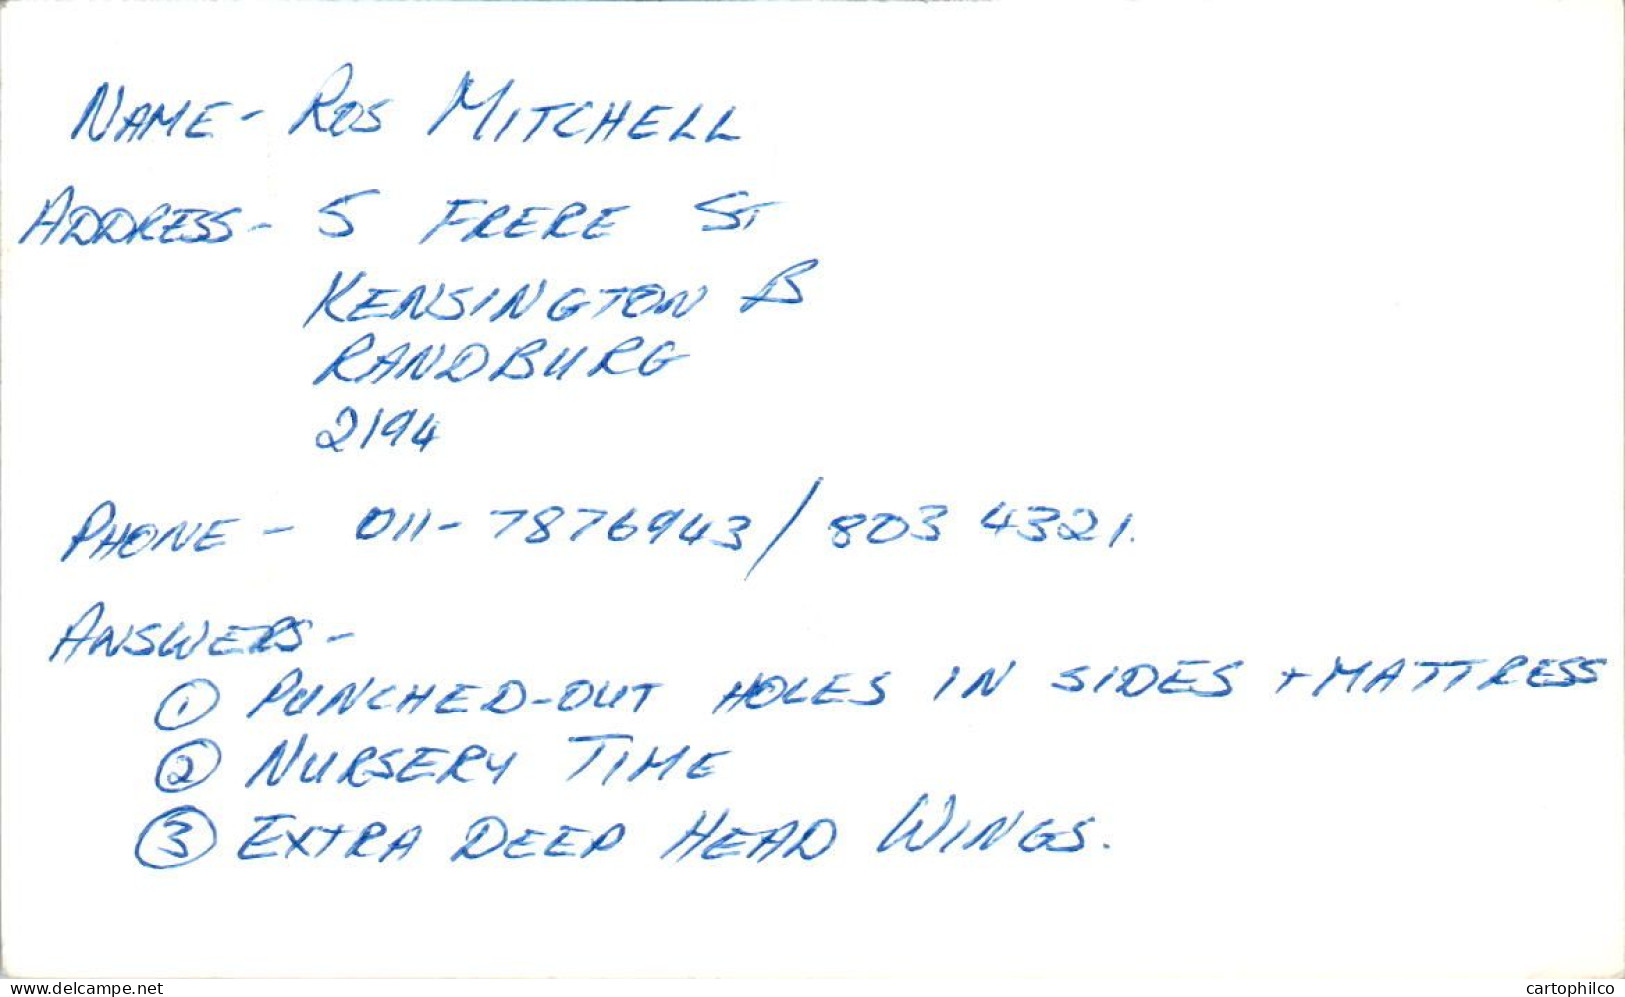 NAME - ROS MITCHELL
ADDRESS - 5 FRERE ST
KENSINGTON B
RANDBURG
2194
PHONE - 011-7876943/803 4321.
ANSWERS -
① PUNCHED-OUT HOLES IN SIDES + MATTRESS
② NURSERY TIME
③ EXTRA DEEP HEAD WINGS.
www.delcampe.net
cartophilco